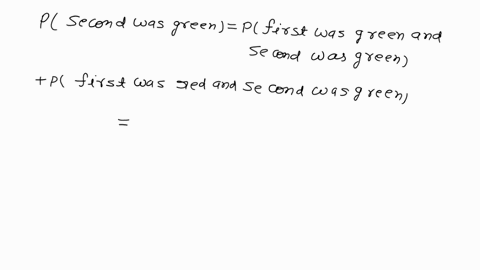 P( Second was green) = P( first was green and
Second was green)
+ P( first was red and Second was green)
=